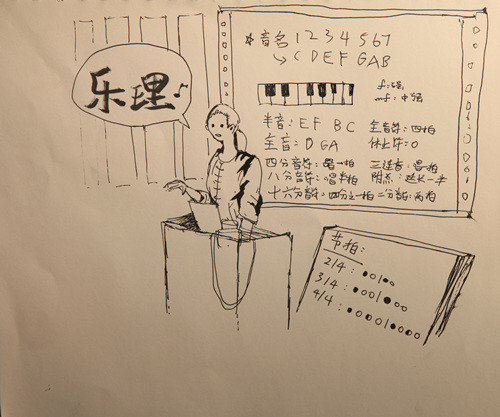 乐理♪
*音名 1 2 3 4 5 6 7
→C D E F G A B
f:强
mf:中强
半音:EF BC 全音符:四拍
主音:D G A 休止符=0
四分音符:唱一拍 三连音:唱一拍
八分音符:唱半拍 附点:延长一半
十六分音符:四分之一拍 二分音符:两拍
节拍:
2/4:●○/●○
3/4:●○○/●○○
4/4:●○○○/●○○○